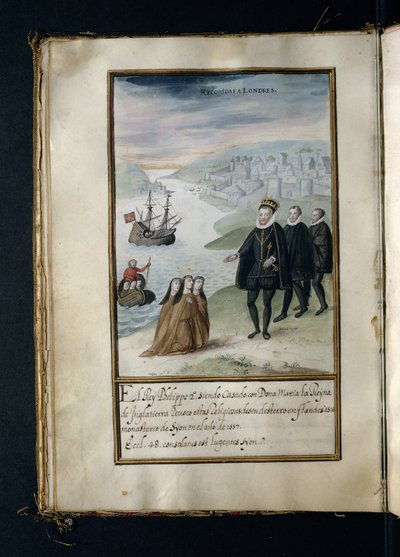 RECOGIDAS A LONDRES.
El Rey Philippe 2º siendo Casado con Dona Maria la Reyna
de Inglatierra Reuoco estas Religiosas de su destierro en flandes a su
monasterio de Syon en el año de 1557.
Eccl. 48. consolatus est lugentes Syon.